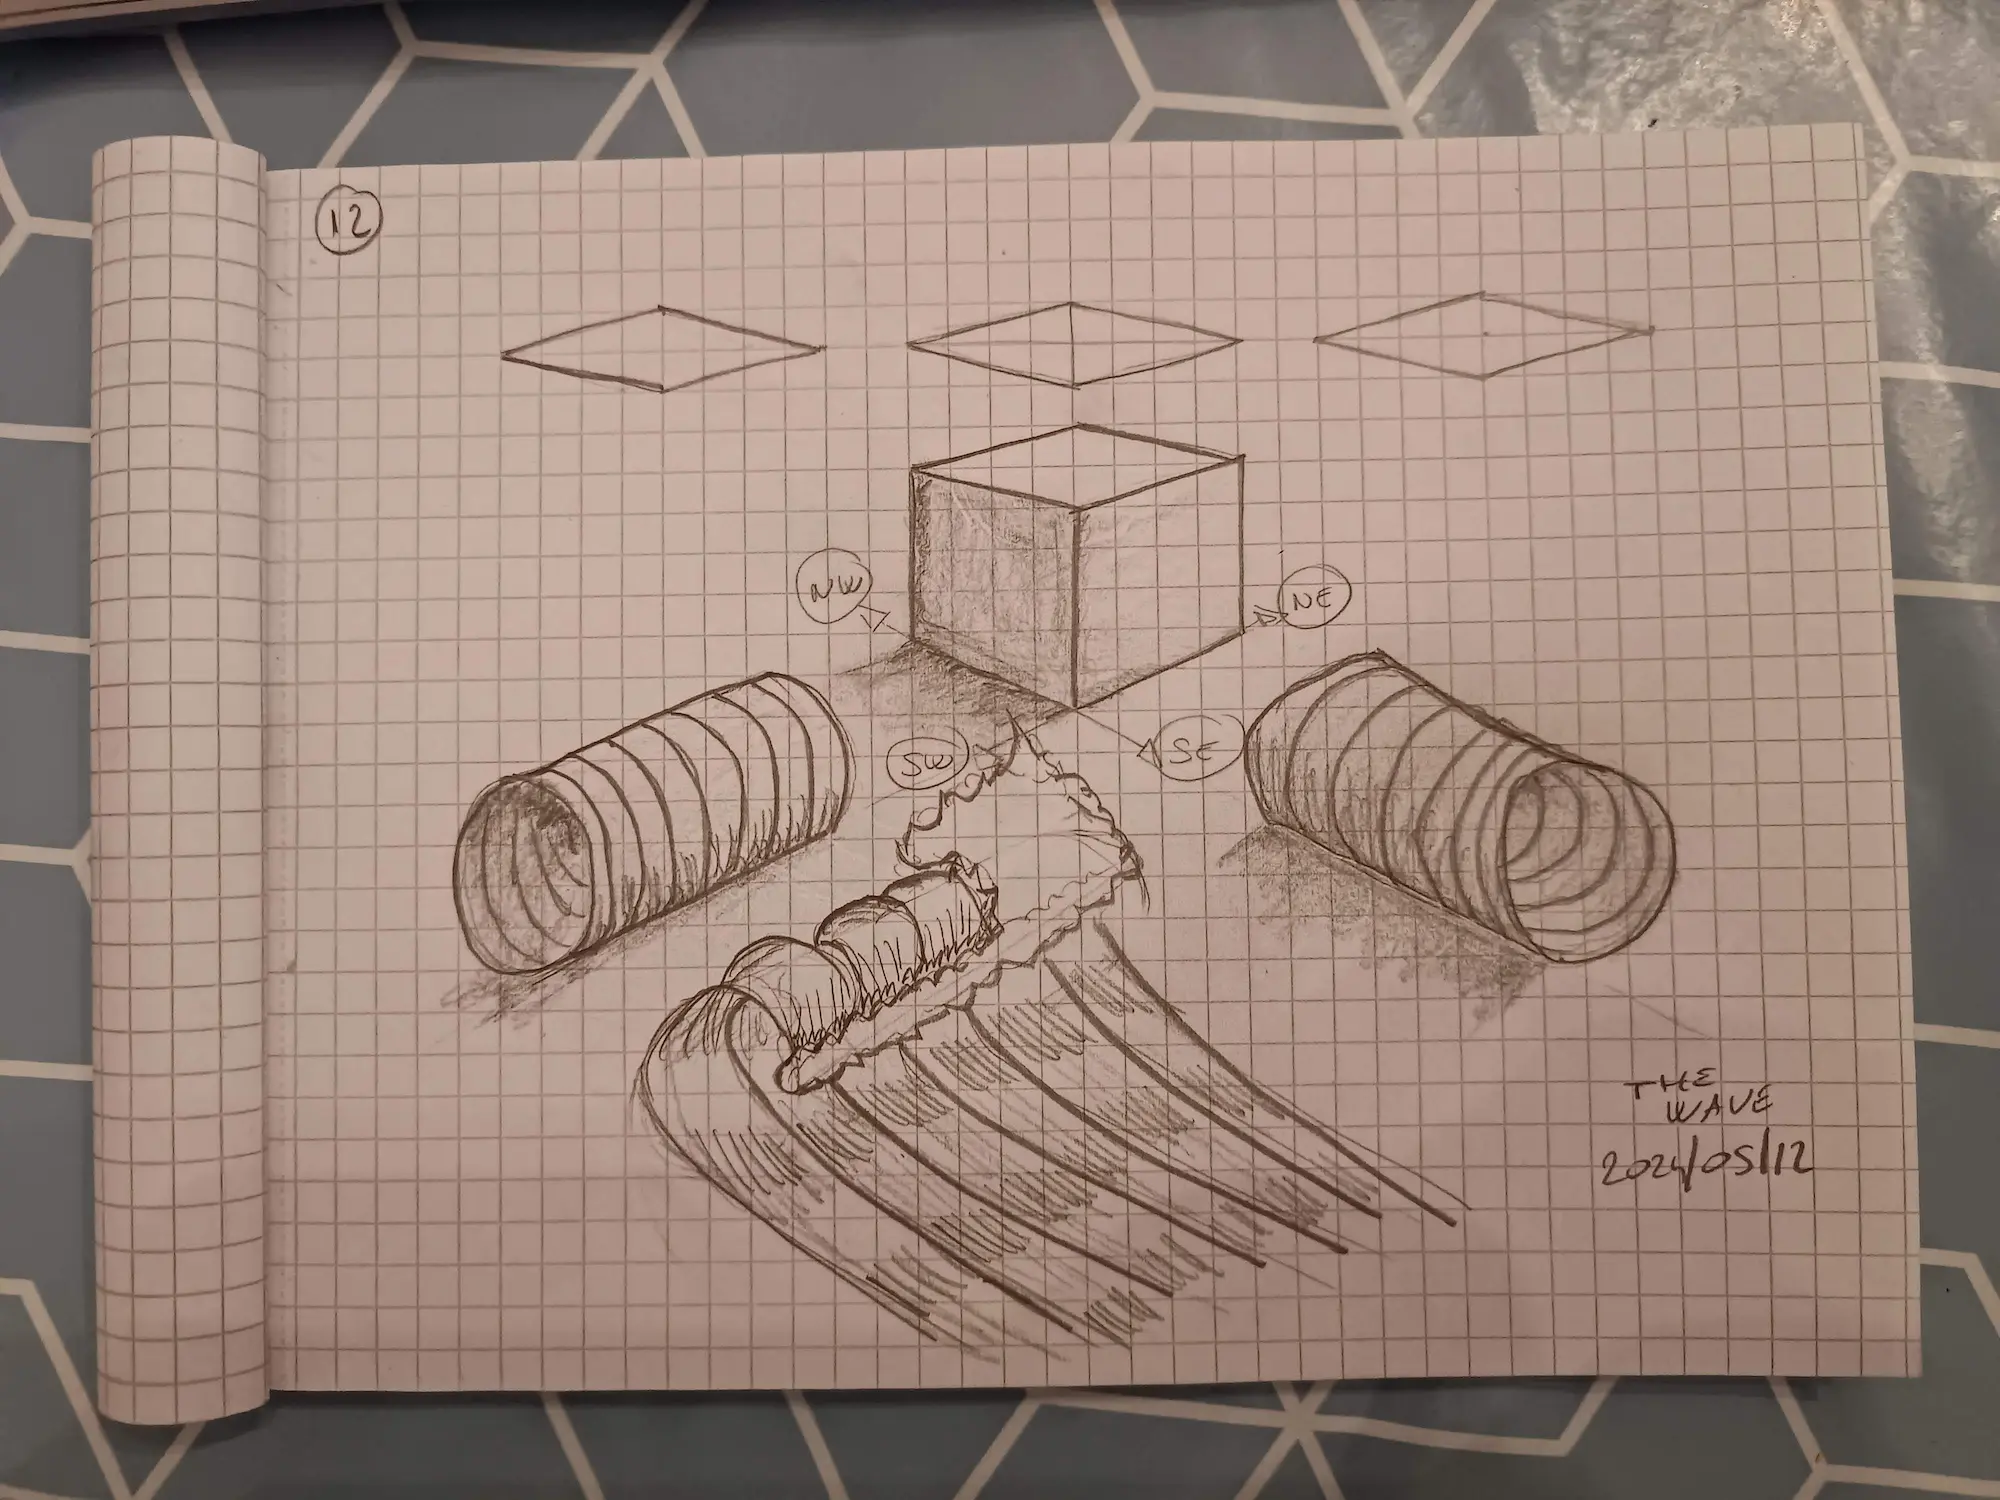 12
NW
NE
SW
SE
THE
WAVE
2024/05/12